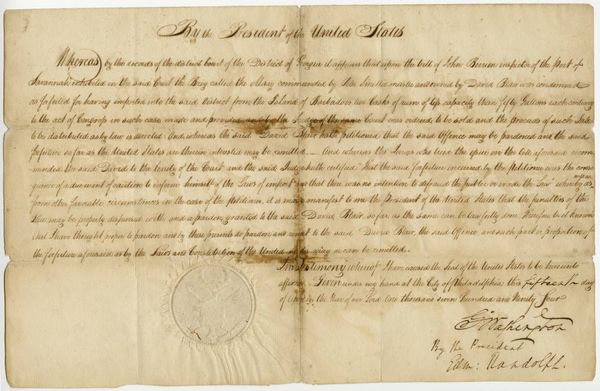 By the President of the United States
Whereas by the records of the district Court of the District of Georgia it appears that upon the bill of John Berrien inspector of the Port of
Savannah exhibited in the said Court the Brig called the Mary commanded by and owned by David Blair was condemned
as forfeited for having imported into the said District from the Island of Barbadoes Casks of rum of less capacity than fifty Gallons each contrary
to the act of Congress in such case made and provided and the Court was ordered to be sold and the proceeds of such Sale
to be distributed as by law is directed And whereas the said David Blair hath petitioned that the said Offence may be pardoned and the said
forfeiture so far as the United States are therein interested may be remitted And whereas the Jurors who tried the upon the bill aforesaid recom
mended the said David to the lenity of the Court and the said Judge hath certified that the said forfeiture incurred by the Petitioner was the conse
quence of a want of caution to inform himself of the Laws of import and that there was no intention to defraud the public or evade the Law whereby
from other favorable circumstances in the case of the petitioner it is made manifest to me the President of the United States that the penalties of the
Law may be properly dispensed with and a pardon granted to the said David Blair so far as the same can be lawfully done Therefore be it known
that I have thought proper to pardon and by these presents do pardon and remit to the said David Blair the said Offence and such part or proportion of
the forfeiture aforesaid as by the Laws and Constitution of the United can be remitted
In Testimony whereof I have caused the Seal of the United States to be hereunto
affixed Given under my hand at the City of Philadelphia this fifteenth day
of in the Year of our Lord One thousand seven hundred and Ninety four
G. Washington
By the President
Edm: Randolph